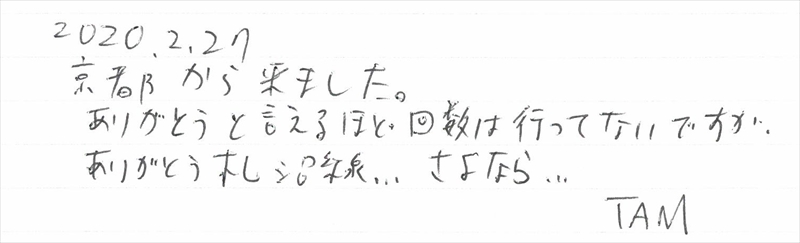 2020.2.27
京都から来ました。
ありがとうと言えるほど回数は行ってないですが、
ありがとう札沼線... さよなら...
TAM